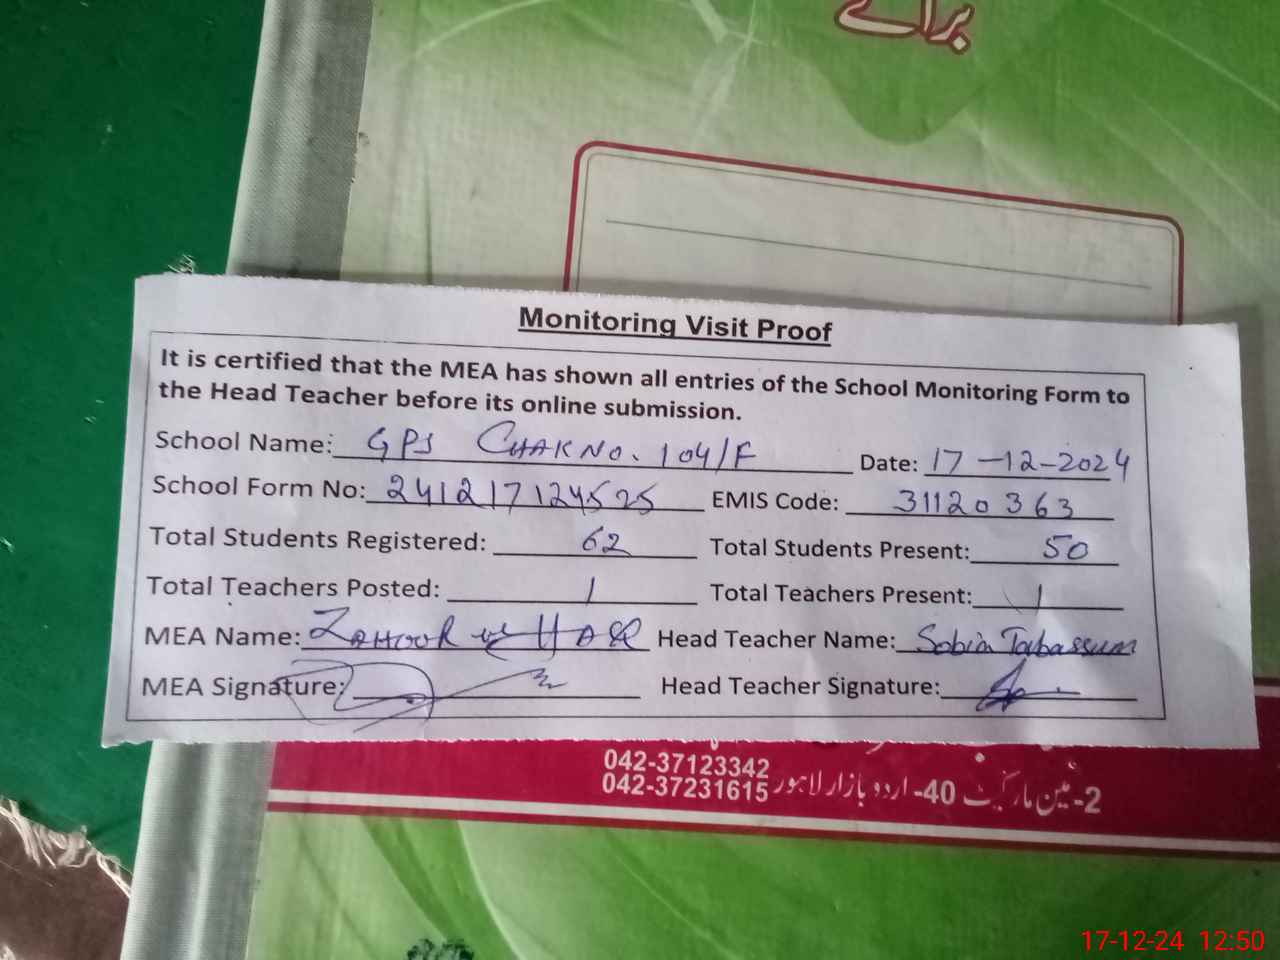 براۓ
Monitoring Visit Proof
It is certified that the MEA has shown all entries of the School Monitoring Form to
the Head Teacher before its online submission.
School Name: GPS CHAK NO. 104/F Date: 17-12-2024
School Form No: 241217124525 EMIS Code: 31120363
Total Students Registered: 62 Total Students Present: 50
Total Teachers Posted: 1 Total Teachers Present: 1
MEA Name: ZAHOOR ul HAQ Head Teacher Name: Sobia Tabassum
MEA Signature: Head Teacher Signature:
042-37123342
2-مین مارکیٹ 40-اردو بازار لاہور 042-37231615
17-12-24 12:50